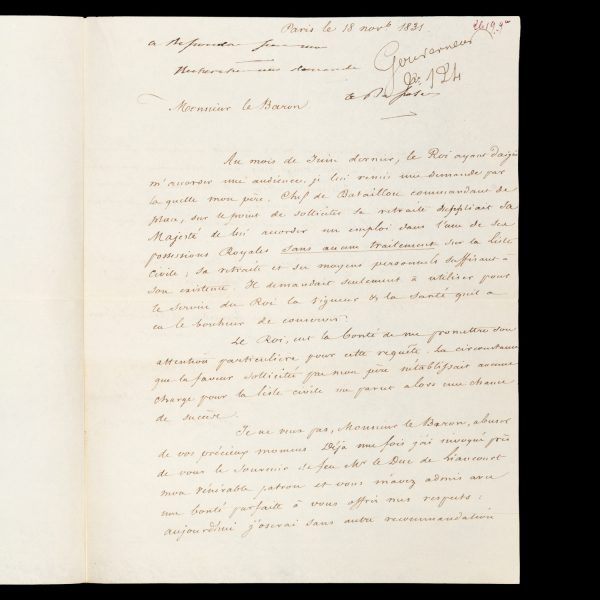 Paris le 18 novb 1831
a Répondre
Rechercher une demande
Gouverneur
124
Monsieur le Baron
Au mois de Juin dernier, le Roi ayant daigné
m'accorder une audience, je lui remis une demande par
la quelle mon père, Chef de Bataillon commandant de
place, sur le point de solliciter sa retraite suppliait Sa
Majesté de lui accorder un emploi dans l'une de ses
possessions Royales sans aucun traitement sur la liste
civile, sa retraite et ses moyens personnels suffisant à
son existence. Il demandait seulement à utiliser pour
le service du Roi la vigueur & la santé qu'il a
eu le bonheur de conserver.
Le Roi, eut la bonté de me promettre son
attention particulière pour cette requête. La circonstance
que la faveur sollicitée par mon père n'établissait aucune
charge pour la liste civile me parut alors une chance
de succès.
Je ne veux pas, Monsieur le Baron, abuser
de vos précieux momens. Déjà une fois j'ai invoqué près
de vous le souvenir de feu Mr le Duc de Liancourt
mon vénérable patron et vous m'avez admis avec
une bonté parfaite à vous offrir mes respects :
aujourd'hui j'oserai sans autre recommandation